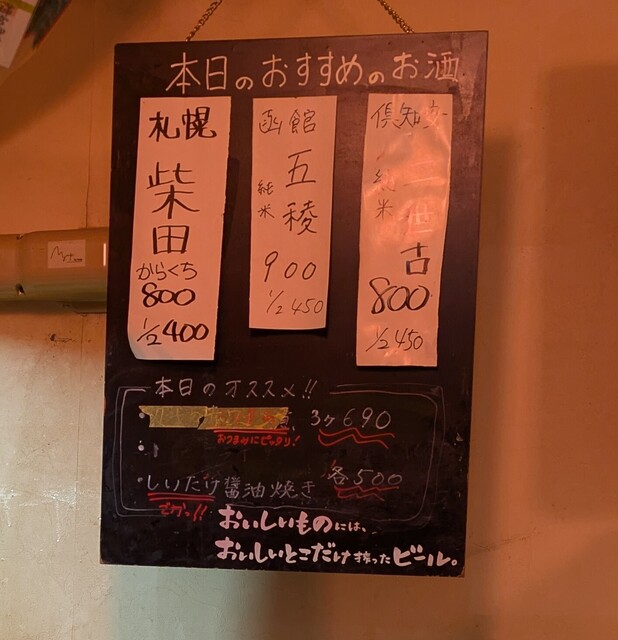 本日のおすすめのお酒
札幌
柴田
からくち
800
1/2 400
函館
五稜
純米
900
1/2 450
倶知安
二世古
純米
800
1/2 450
本日のオススメ!!
3ヶ690
おつまみにピッタリ!
しいたけ醤油焼き 各500
おいしいものには、
おいしいとこだけ搾ったビール。